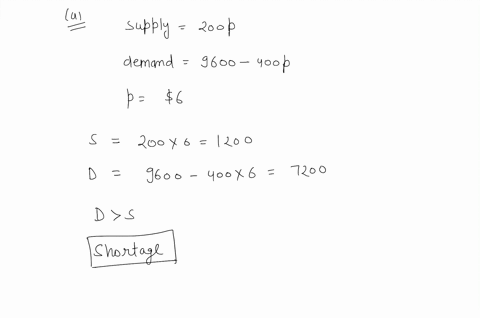 (a)
supply = 200p
demand = 9600 - 400p
p = $6
S = 200 × 6 = 1200
D = 9600 - 400 × 6 = 7200
D > S
Shortage